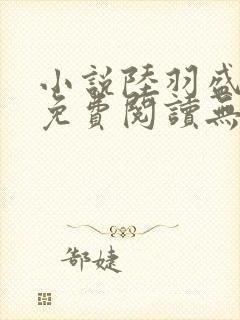 小說陸羽盛
免費閱讀無
郜婕